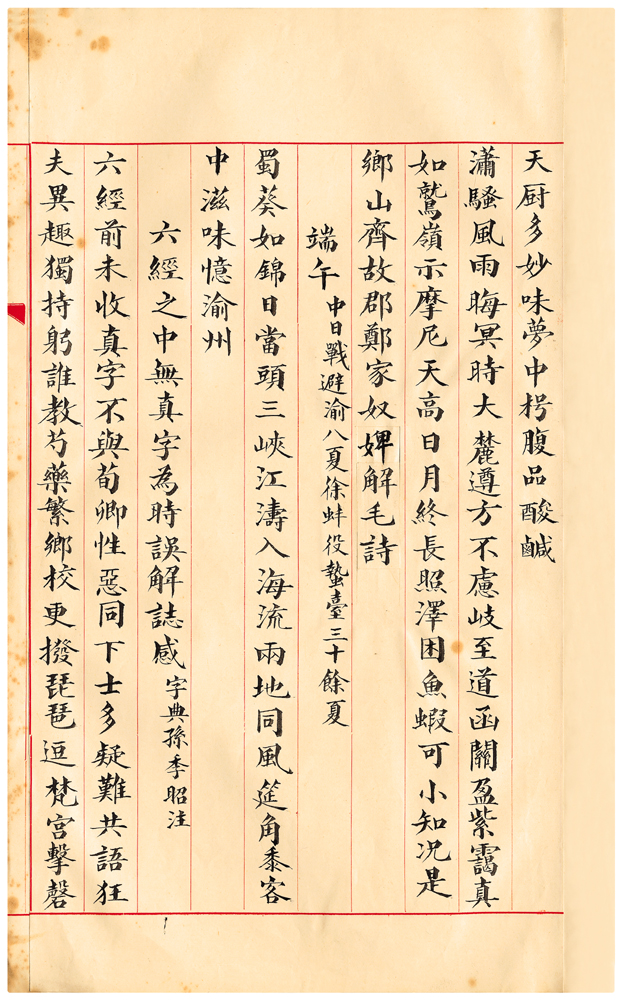 天厨多妙味夢中枵腹品酸鹹
瀟騷風雨晦冥時大麓遵方不慮歧至道函關盈紫靄真
如鷲嶺示摩尼天高日月終長照澤困魚蝦可小知況是
鄉山齊故郡鄭家奴婢解毛詩
端午 中日戰避渝八夏徐蚌役蟄臺三十餘夏
蜀葵如錦日當頭三峽江濤入海流兩地同風筵角黍客
中滋味憶渝州
六經之中無真字為時誤解誌感 字典孫季昭注
六經前未收真字不與荀卿性惡同下士多疑難共語狂
夫異趣獨持躬誰教芍藥繁鄉校更撥琵琶逗梵宮擊磬